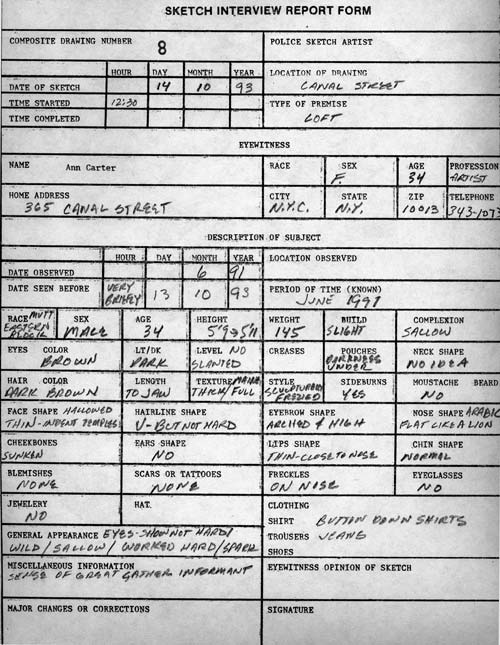 SKETCH INTERVIEW REPORT FORM
COMPOSITE DRAWING NUMBER 8
POLICE SKETCH ARTIST
HOUR DAY MONTH YEAR
DATE OF SKETCH 14 10 93
LOCATION OF DRAWING
CANAL STREET
TIME STARTED 12:30
TYPE OF PREMISE
LOFT
TIME COMPLETED
EYEWITNESS
NAME Ann Carter
RACE
SEX
F.
AGE
34
PROFESSION
ARTIST
HOME ADDRESS
365 CANAL STREET
CITY
N.Y.C.
STATE
N.Y.
ZIP
10013
TELEPHONE
343-107
DESCRIPTION OF SUBJECT
HOUR DAY MONTH YEAR
LOCATION OBSERVED
DATE OBSERVED 6 91
DATE SEEN BEFORE VERY BRIEFLY 13 10 93
PERIOD OF TIME (KNOWN)
JUNE 1991
RACE MUTT.
EASTERN
BLOCK
SEX
MALE
AGE
34
HEIGHT
WEIGHT
145
BUILD
SLIGHT
COMPLEXION
SALLOW
EYES COLOR
BROWN
LT/DK
DARK
LEVEL NO
SLANTED
CREASES
POUCHES
DARKNESS
UNDER
NECK SHAPE
NO IDEA
HAIR COLOR
DARK BROWN
LENGTH
TO JAW
TEXTURE
THICK/FULL
STYLE
SCULPTURED
SIDEBURNS
YES
MOUSTACHE BEARD
NO
FACE SHAPE HALLOWED
THIN-INDENT TEMPLES
HAIRLINE SHAPE
V-BUT NOT HARD
EYEBROW SHAPE
ARCHED & HIGH
NOSE SHAPE ARABIC
FLAT LIKE A LION
CHEEKBONES
SUNKEN
EARS SHAPE
NO
LIPS SHAPE
THIN-CLOSE TO NOSE
CHIN SHAPE
NORMAL
BLEMISHES
NONE
SCARS OR TATTOOES
NONE
FRECKLES
ON NOSE
EYEGLASSES
NO
JEWELERY
NO
HAT.
CLOTHING
SHIRT BUTTON DOWN SHIRTS
TROUSERS JEANS
SHOES
GENERAL APPEARANCE EYES- NOT HARD/
WILD/SALLOW/WORKED HARD/SPARK
MISCELLANEOUS INFORMATION
SENSE OF GREAT GATHER INFORMANT
EYEWITNESS OPINION OF SKETCH
MAJOR CHANGES OR CORRECTIONS
SIGNATURE